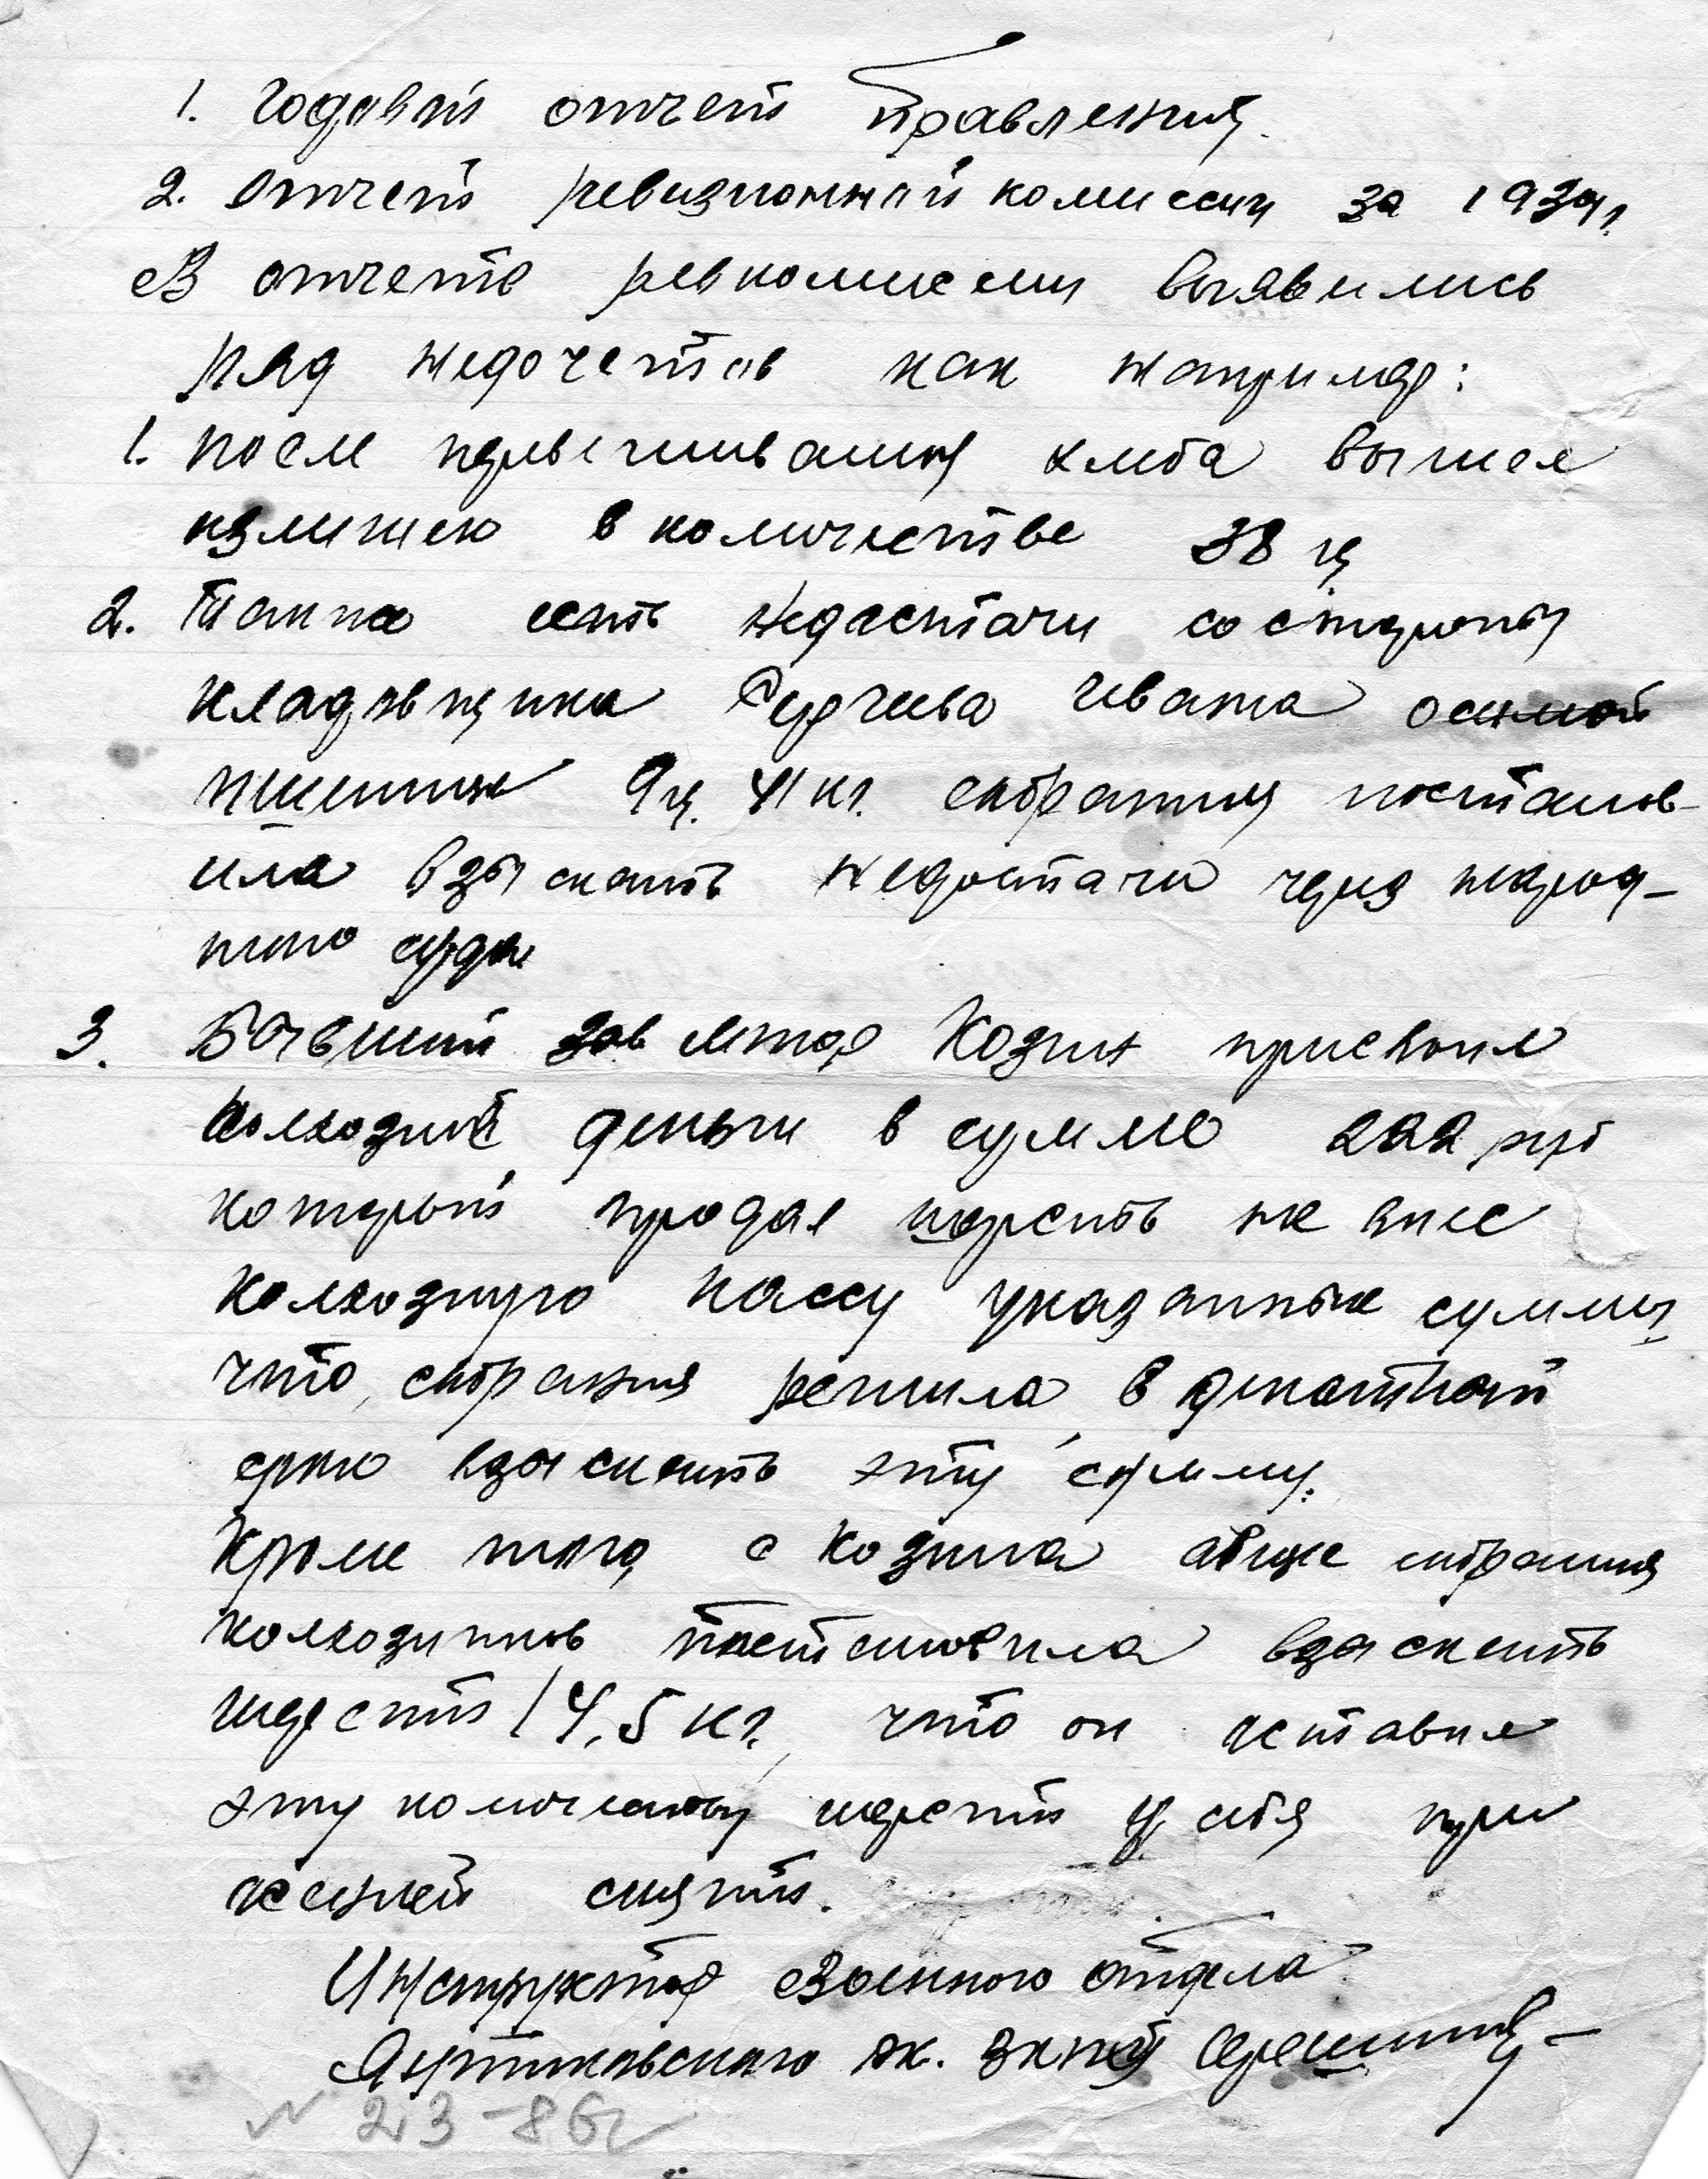 1. Годовой отчет Правления.
2. Отчет ревизионной комиссии за 1939 г.
В отчете ревкомиссии выявились
ряд недочетов как например:
1. После перевешивания хлеба вышел
излишек в количестве 38 ц
2. Также есть недостачи со стороны
кладовщика Сергеева Ивана
пшеницы 9 ц. 41 кг. собрания постанов-
ила взыскать недостачи через народ-
ного суда
3. Бывший зав МТФ Козин присвоил
колхозной деньги в сумме 222 руб
который продал шерсть не внес
колхозную кассу указанные суммы
что собрания решила в декатной
срок взыскать эту сумму.
Кроме того, с Козина обще собрания
колхозников постановила взыскать
шерсти 14,5 кг, что он оставил
эту количеству шерсти у себя при
осенней снятий.
Инструктор Военного отдела
2,3 - 86г